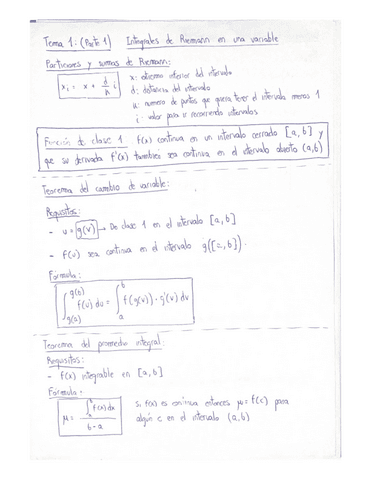 Tema 1: (Parte 1) Integrales de Riemann en una variable
Particiones y sumas de Riemann:
x_i = x + d/n i
x: extremo inferior del intervalo
d: distancia del intervalo
n: numero de puntos que quiera tener el intervalo menos 1
i: valor para ir recorriendo intervalos
Función de clase 1: f(x) continua en un intervalo cerrado [a,b] y
que su derivada f'(x) tambien sea continua en el intervalo abierto (a,b)
Teorema del cambio de variable:
Requisitos:
- u = g(v) → De clase 1 en el intervalo [a,b]
- f(u) sea continua en el intervalo g([a,b]).
Formula:
∫_{g(a)}^{g(b)} f(u) du = ∫_a^b f(g(v)) · g'(v) dv
Teorema del promedio integral:
Requisitos:
- f(x) integrable en [a,b]
Formula:
μ = ∫_a^b f(x) dx / b - a
Si f(x) es continua entonces μ = f(c) para
algún c en el intervalo (a,b)